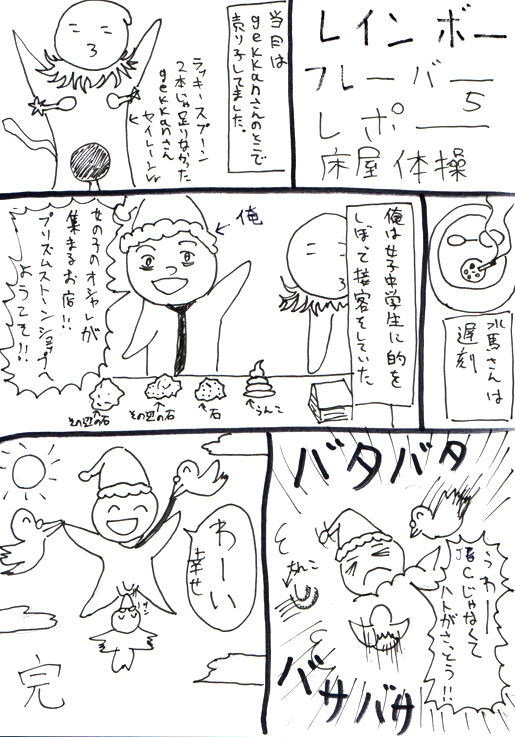 レインボー
フレーバー
レポー5
床屋体操
当日は
gekkanさんのとこで
売り子してました。
ラッキースプーン
2本じゃ足りなかった
gekkanさん
セイレーン
水馬さんは
遅刻
俺は女子中学生に的を
しぼって接客をしていた
俺
女の子のオシャレが
集まるお店!!
プリズムストーンショップへ
ようこそ!!
その辺の石
その辺の石
石
うんこ
バタバタ
うわー
JCじゃなくて
ハトがさっとう!!
バサバサ
わーい
幸せ
完